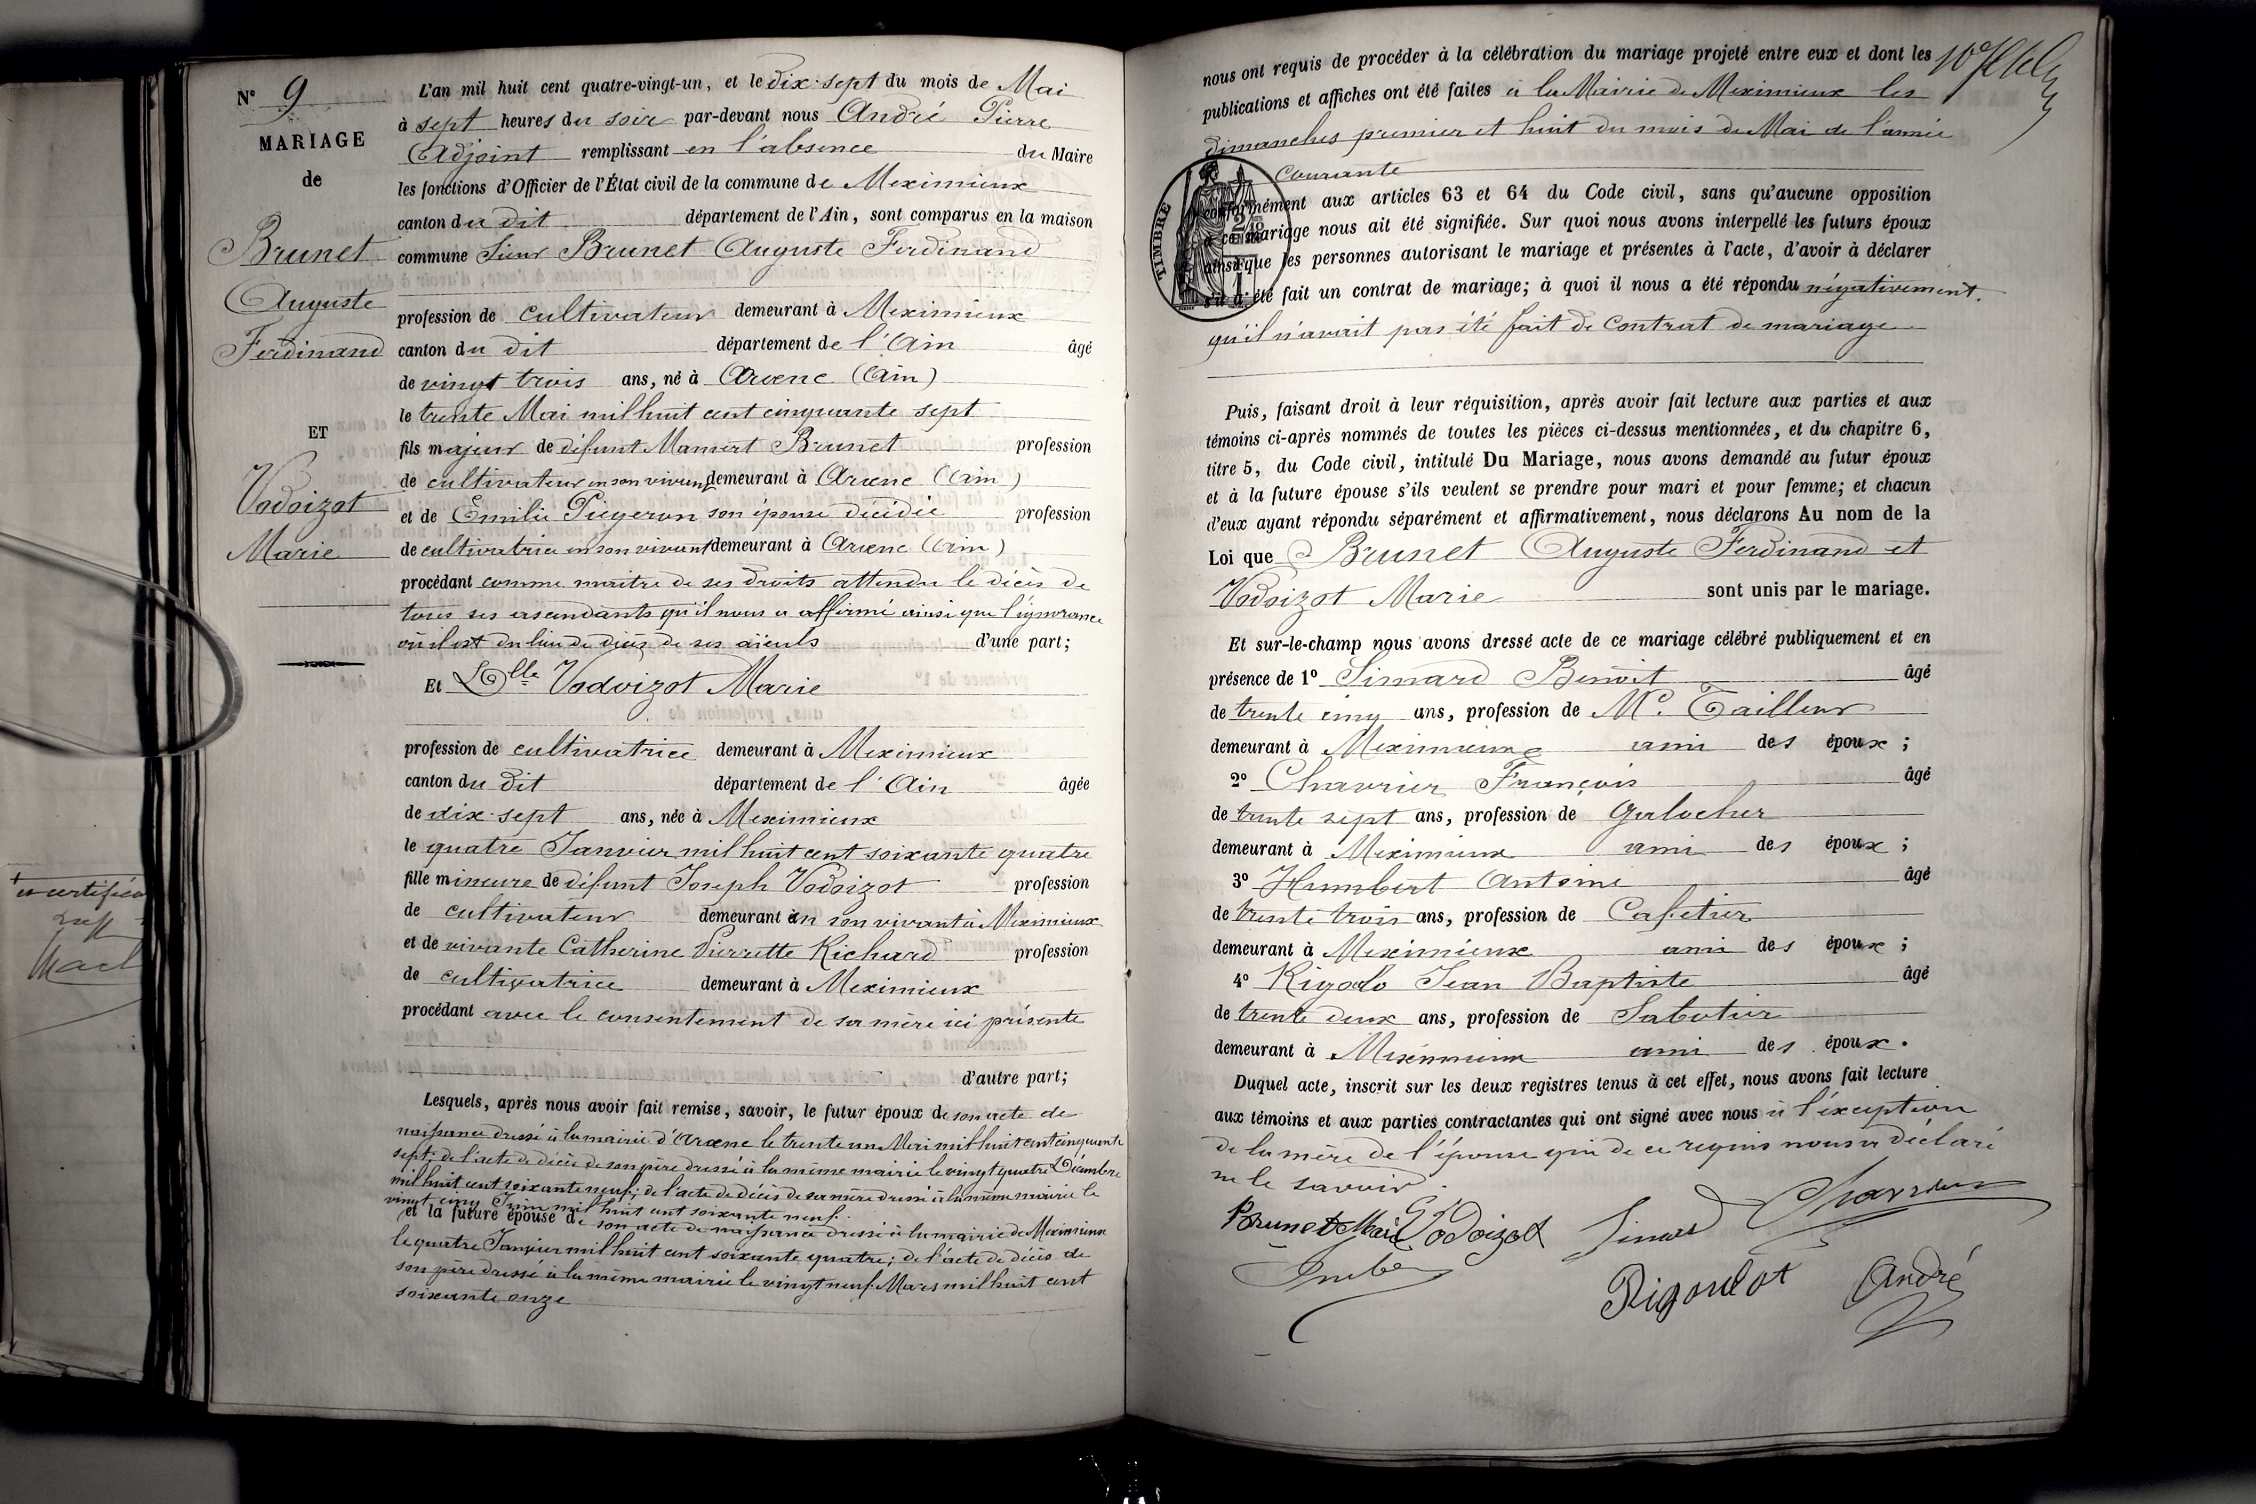 N° 9
MARIAGE
de
Brunet
Auguste
Ferdinand
ET
Vodoizot
Marie
L'an mil huit cent quatre-vingt-un, et le dix-sept du mois de Mai
à sept heures du soir par-devant nous André Pierre
Adjoint remplissant en l'absence du Maire
les fonctions d'Officier de l'État civil de la commune de Meximieux
canton du dit département de l'Ain, sont comparus en la maison
commune Sieur Brunet Auguste Ferdinand
profession de cultivateur demeurant à Meximieux
canton du dit département de l'Ain âgé
de vingt trois ans, né à Aranc (Ain)
le trente Mai mil huit cent cinquante sept
fils majeur de défunt Mamert Brunet profession
de cultivateur en son vivant demeurant à Aranc (Ain)
et de Emilie Pigeron son épouse décédée profession
de cultivatrice en son vivant demeurant à Aranc (Ain)
procédant comme maître de ses droits attendu le décès de
tous ses ascendants qu'il nous a affirmé ainsi que l'ignorance
où il est du lieu de décès de ses aïeuls d'une part;
Et Dlle Vodoizot Marie
profession de cultivatrice demeurant à Meximieux
canton du dit département de l'Ain âgée
de dix-sept ans, née à Meximieux
le quatre Janvier mil huit cent soixante quatre
fille mineure de défunt Joseph Vodoizot profession
de cultivateur demeurant en son vivant à Meximieux
et de vivante Catherine Pierrette Richard profession
de cultivatrice demeurant à Meximieux
procédant avec le consentement de sa mère ici présente
d'autre part;
Lesquels, après nous avoir fait remise, savoir, le futur époux de son acte de
naissance dressé à la mairie d'Aranc le trente un Mai mil huit cent cinquante
sept; de l'acte de décès de son père dressé à la même mairie le vingt quatre Décembre
mil huit cent soixante neuf; de l'acte de décès de sa mère dressé à la même mairie le
vingt cinq Juin mil huit cent soixante neuf.
et la future épouse de son acte de naissance dressé à la mairie de Meximieux
le quatre Janvier mil huit cent soixante quatre; de l'acte de décès de
son père dressé à la même mairie le vingt neuf Mars mil huit cent
soixante onze
nous ont requis de procéder à la célébration du mariage projeté entre eux et dont les
publications et affiches ont été faites à la Mairie de Meximieux les
dimanches premier et huit du mois de Mai de l'année
courante
TIMBRE
conformément aux articles 63 et 64 du Code civil, sans qu'aucune opposition
à ce mariage nous ait été signifiée. Sur quoi nous avons interpellé les futurs époux
ainsi que les personnes autorisant le mariage et présentes à l'acte, d'avoir à déclarer
s'il a été fait un contrat de mariage; à quoi il nous a été répondu négativement.
qu'il n'avait pas été fait de contrat de mariage
Puis, faisant droit à leur réquisition, après avoir fait lecture aux parties et aux
témoins ci-après nommés de toutes les pièces ci-dessus mentionnées, et du chapitre 6,
titre 5, du Code civil, intitulé Du Mariage, nous avons demandé au futur époux
et à la future épouse s'ils veulent se prendre pour mari et pour femme; et chacun
d'eux ayant répondu séparément et affirmativement, nous déclarons Au nom de la
Loi que Brunet Auguste Ferdinand et
Vodoizot Marie sont unis par le mariage.
Et sur-le-champ nous avons dressé acte de ce mariage célébré publiquement et en
présence de 1° Simard Benoit âgé
de trente cinq ans, profession de Md. Tailleur
demeurant à Meximieux ami des époux;
2° Chavrier François âgé
de trente sept ans, profession de Galocher
demeurant à Meximieux ami des époux;
3° Humbert Antoine âgé
de trente trois ans, profession de Cafetier
demeurant à Meximieux ami des époux;
4° Rigolo Jean Baptiste âgé
de trente deux ans, profession de Sabotier
demeurant à Meximieux ami des époux.
Duquel acte, inscrit sur les deux registres tenus à cet effet, nous avons fait lecture
aux témoins et aux parties contractantes qui ont signé avec nous à l'exception
de la mère de l'épouse qui de ce requis nous a déclaré
ne le savoir.
Brunet Marie Vodoizot Simard Chavrier
Rigoulot André